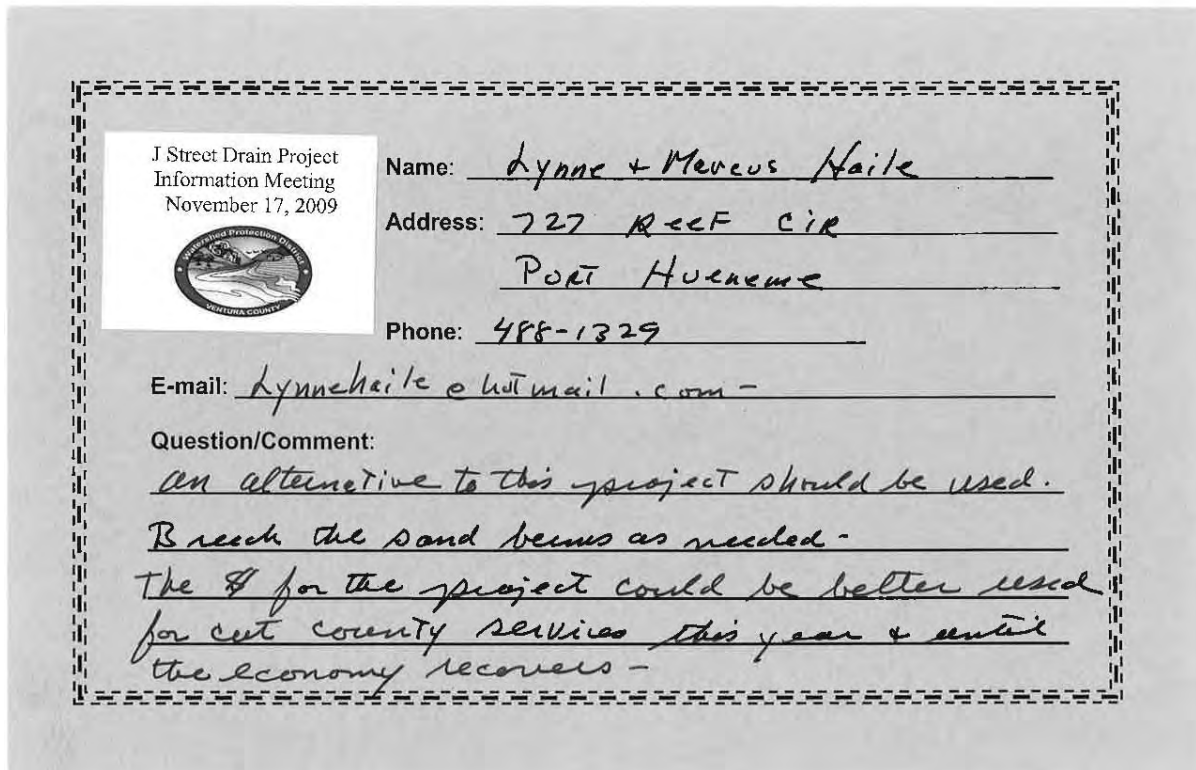 J Street Drain Project
Information Meeting
November 17, 2009
Watershed Protection District
VENTURA COUNTY
Name: Lynne + Marcus Haile
Address: 727 ReeF CiR
PorT Hueneme
Phone: 488-1329
E-mail: Lynnehaile@hotmail.com-
Question/Comment:
an alternative to this project should be used.
Breech the sand berms as needed-
The $ for the project could be better used
for cut county services this year + until
the economy recovers-